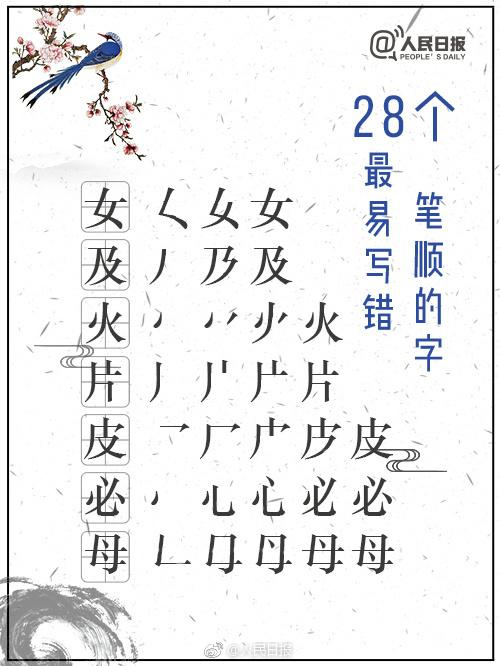 @人民日报
PEOPLE'S DAILY
28个
最易写错
笔顺的字
女 𡿨 女 女
及 丿 乃 及
火 火
片 丿 片
皮 皮
必 心 心 必 必
母 𠃊 母 母
@人民日报